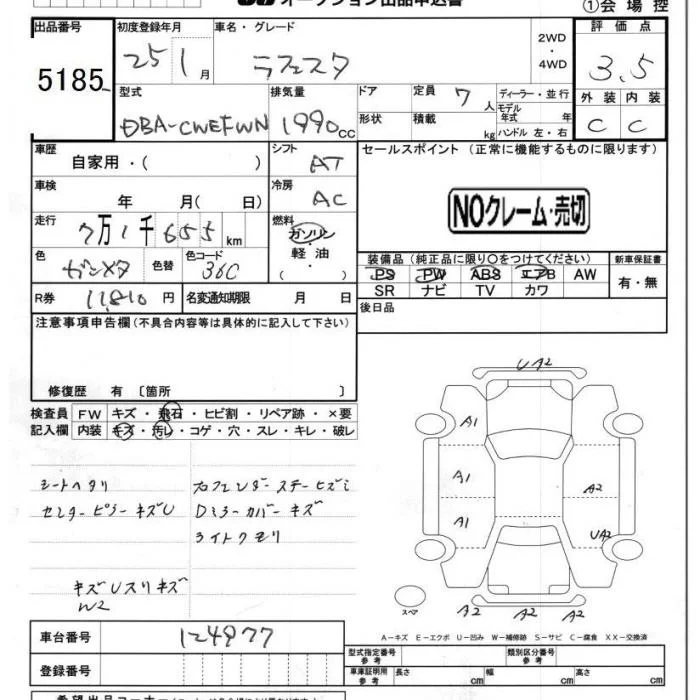 オークション出品申込書
①会場控
出品番号 初度登録年月 車名・グレード 2WD・4WD 評価点
5185 25年1月 ラフェスタ 3.5
型式 排気量 ドア 定員 7人 ディーラー・並行 外装 内装
DBA-CWEFWN 1990cc 形状 積載 kg モデル年式 年 ハンドル 左・右 C C
車歴 シフト セールスポイント (正常に機能するものに限ります)
自家用・( ) AT
車検 冷房
年 月( 日) AC
NOクレーム・売切
走行 7万1千655km 燃料
ガソリン・軽油・( )
色 ガンメタ 色替 色コード 36C
装備品 (純正品に限り○をつけてください) 新車保証書
PS PW ABS エアB AW 有・無
SR ナビ TV カワ
R券 11,810円 名変通知期限 月 日
後日品
注意事項申告欄 (不具合内容等は具体的に記入して下さい)
修復歴 有 〔箇所 〕
検査員 FW キズ・飛石・ヒビ割・リペア跡・×要
記入欄 内装 キズ・汚レ・コゲ・穴・スレ・キレ・破レ
シートヘタリ
センターピラーキズU
Dミラーカバーキズ
ライトクモリ
キズUスリキズ
W2
UA2
A1
A1 A2
A1 UA2
スペア A2 A2 A2
A-キズ E-エクボ U-凹み W-補修跡 S-サビ C-腐食 XX-交換済
車台番号 124977
型式指定番号 参考 類別区分番号 参考
登録番号
車庫証明用 参考 長さ cm 幅 cm 高さ cm